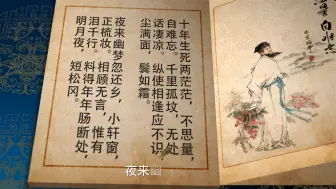 十年生死两茫茫，不思量，
自难忘。千里孤坟，无处
话凄凉。纵使相逢应不识
尘满面，鬓如霜。
夜来幽梦忽还乡，小轩窗，
正梳妆。相顾无言，惟有
泪千行。料得年年肠断处，
明月夜，短松冈。
夜来幽